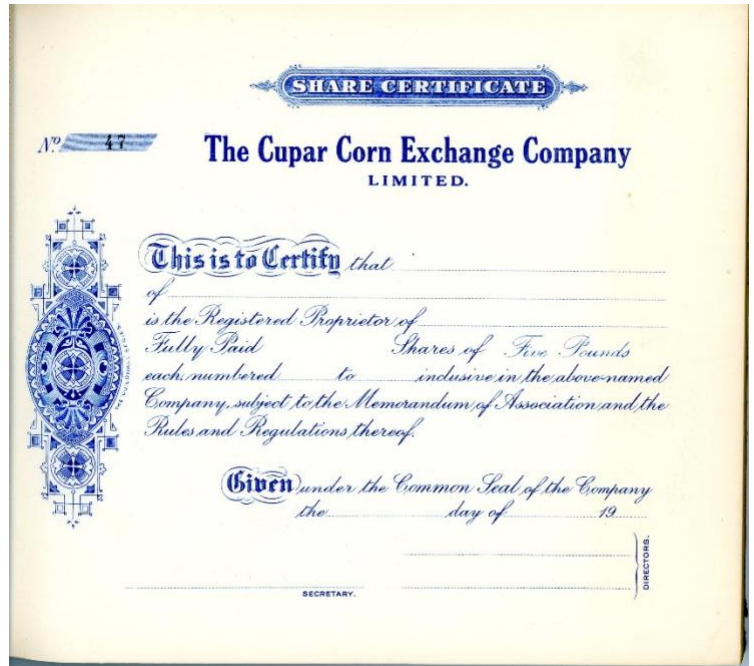 SHARE CERTIFICATE
No 47
The Cupar Corn Exchange Company
LIMITED.
This is to Certify that
of
is the Registered Proprietor of
Fully Paid Shares of Five Pounds
each, numbered to inclusive in the above-named
Company, subject to the Memorandum of Association and the
Rules and Regulations thereof.
Given under the Common Seal of the Company
the day of 19
DIRECTORS.
SECRETARY.